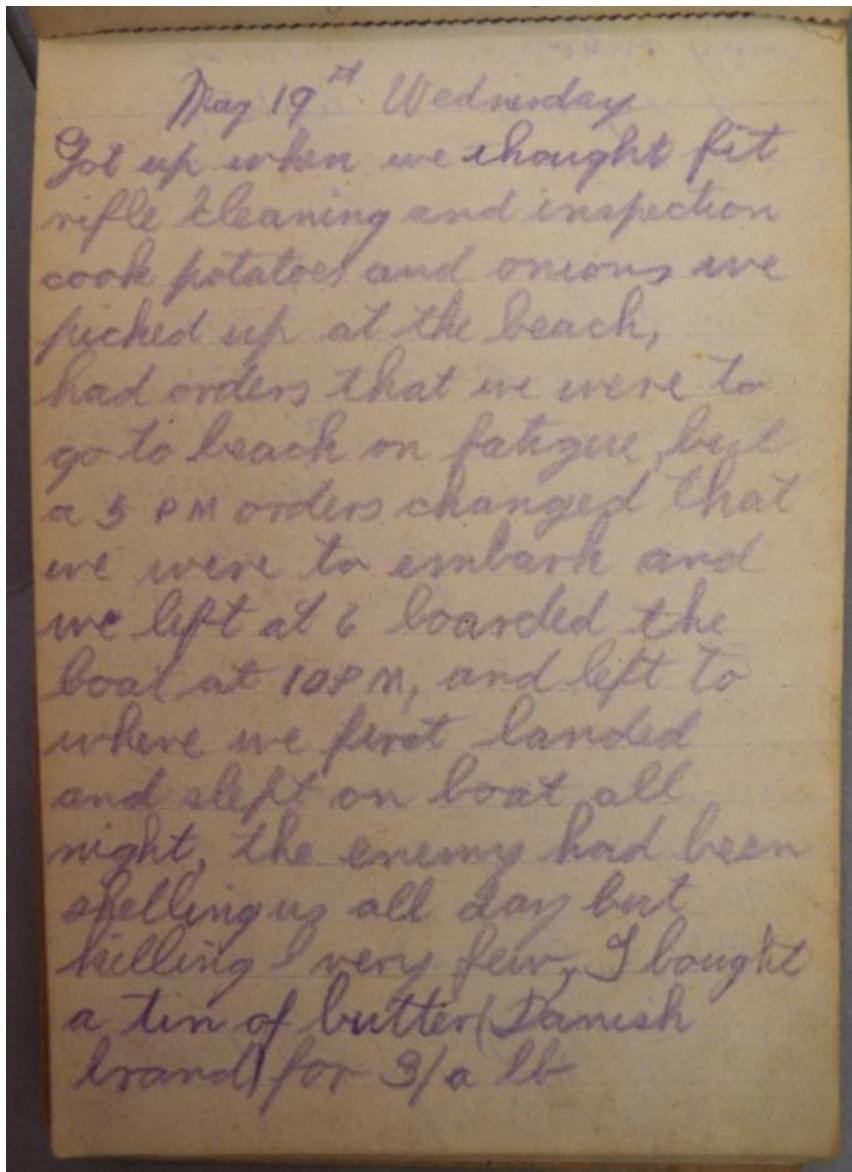 May 19th Wednesday
Got up when we thought fit
rifle cleaning and inspection
cook potatoes and onions we
picked up at the beach,
had orders that we were to
go to beach on fatigue, but
a 5 PM orders changed that
we were to embark and
we left at 6 boarded the
boat at 10 PM, and left to
where we first landed
and slept on boat all
night, the enemy had been
shelling us all day but
killing very few, I bought
a tin of butter (Danish
brand) for 3/ a lb